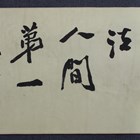 法
人間
第一